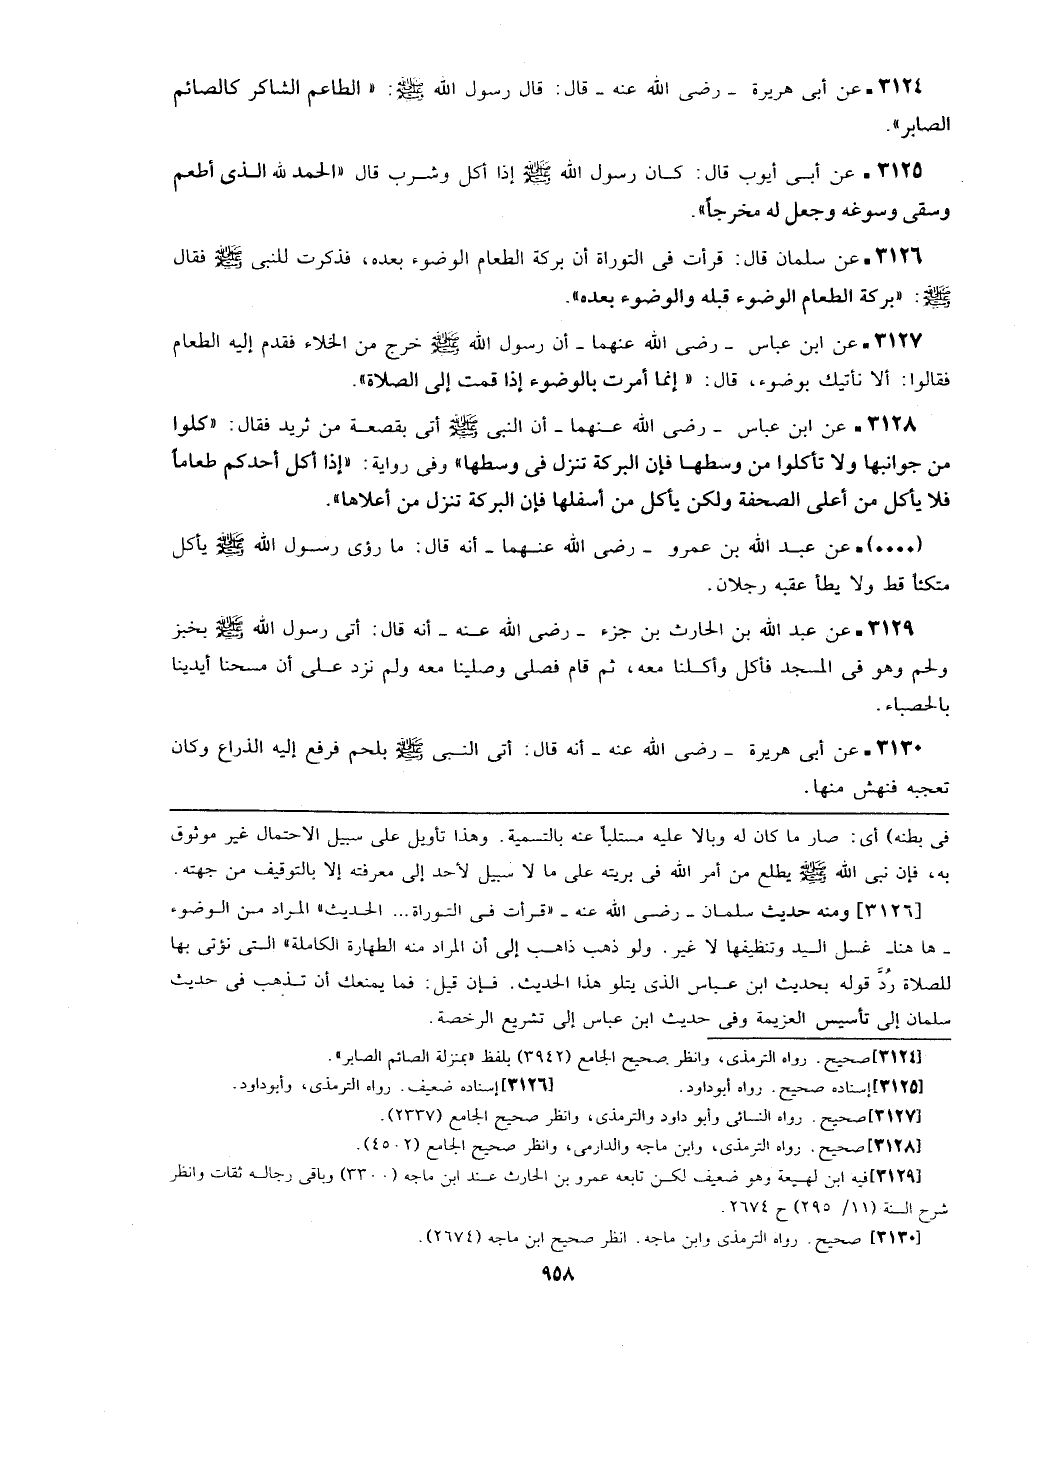 ٣١٢٤ ▪ عن أبى هريرة ـ رضى الله عنه ـ قال: قال رسول الله ﷺ: « الطاعم الشاكر كالصائم
الصابر».
٣١٢٥ ▪ عن أبى أيوب قال: كان رسول الله ﷺ إذا أكل وشرب قال «الحمد لله الذى أطعم
وسقى وسوغه وجعل له مخرجاً».
٣١٢٦ ▪ عن سلمان قال: قرأت فى التوراة أن بركة الطعام الوضوء بعده، فذكرت للنبى ﷺ فقال
ﷺ: «بركة الطعام الوضوء قبله والوضوء بعده».
٣١٢٧ ▪ عن ابن عباس ـ رضى الله عنهما ـ أن رسول الله ﷺ خرج من الخلاء فقدم إليه الطعام
فقالوا: ألا نأتيك بوضوء، قال: « إنما أمرت بالوضوء إذا قمت إلى الصلاة».
٣١٢٨ ▪ عن ابن عباس ـ رضى الله عنهما ـ أن النبى ﷺ أتى بقصعة من ثريد فقال: «كلوا
من جوانبها ولا تأكلوا من وسطها فإن البركة تنزل فى وسطها» وفى رواية: «إذا أكل أحدكم طعاماً
فلا يأكل من أعلى الصحفة ولكن يأكل من أسفلها فإن البركة تنزل من أعلاها».
(٠٠٠٠) ▪ عن عبد الله بن عمرو ـ رضى الله عنهما ـ أنه قال: ما رؤى رسول الله ﷺ يأكل
متكئاً قط ولا يطأ عقبه رجلان.
٣١٢٩ ▪ عن عبد الله بن الحارث بن جزء ـ رضى الله عنه ـ أنه قال: أتى رسول الله ﷺ بخبز
ولحم وهو فى المسجد فأكل وأكلنا معه، ثم قام فصلى وصلينا معه ولم نزد على أن مسحنا أيدينا
بالحصباء.
٣١٣٠ ▪ عن أبى هريرة ـ رضى الله عنه ـ أنه قال: أتى النبى ﷺ بلحم فرفع إليه الذراع وكان
تعجبه فنهش منها.
فى بطنه) أى: صار ما كان له وبالا عليه مستلباً عنه بالتسمية. وهذا تأويل على سبيل الاحتمال غير موثوق
به، فإن نبى الله ﷺ يطلع من أمر الله فى بريته على ما لا سبيل لأحد إلى معرفته إلا بالتوقيف من جهته.
[٣١٢٦] ومنه حديث سلمان ـ رضى الله عنه ـ «قرأت فى التوراة... الحديث» المراد من الوضوء
ـ ها هنا ـ غسل اليد وتنظيفها لا غير. ولو ذهب ذاهب إلى أن المراد منه الطهارة الكاملة» التى نؤتى بها
للصلاة رُدَّ قوله بحديث ابن عباس الذى يتلو هذا الحديث. فإن قيل: فما يمنعك أن تذهب فى حديث
سلمان إلى تأسيس العزيمة وفى حديث ابن عباس إلى تشريع الرخصة.
[٣١٢٤] صحيح. رواه الترمذى، وانظر صحيح الجامع (٣٩٤٢) بلفظ «بمنزلة الصائم الصابر».
[٣١٢٥] إسناده صحيح. رواه أبوداود. [٣١٢٦] إسناده ضعيف. رواه الترمذى، وأبوداود.
[٣١٢٧] صحيح. رواه النسائى وأبو داود والترمذى، وانظر صحيح الجامع (٢٣٣٧).
[٣١٢٨] صحيح. رواه الترمذى، وابن ماجه والدارمى، وانظر صحيح الجامع (٤٥٠٢).
[٣١٢٩] فيه ابن لهيعة وهو ضعيف لكن تابعه عمرو بن الحارث عند ابن ماجه (٣٣٠٠) وباقى رجاله ثقات وانظر
شرح السنة (١١/ ٢٩٥) ح ٢٦٧٤.
[٣١٣٠] صحيح. رواه الترمذى وابن ماجه. انظر صحيح ابن ماجه (٢٦٧٤).
٩٥٨